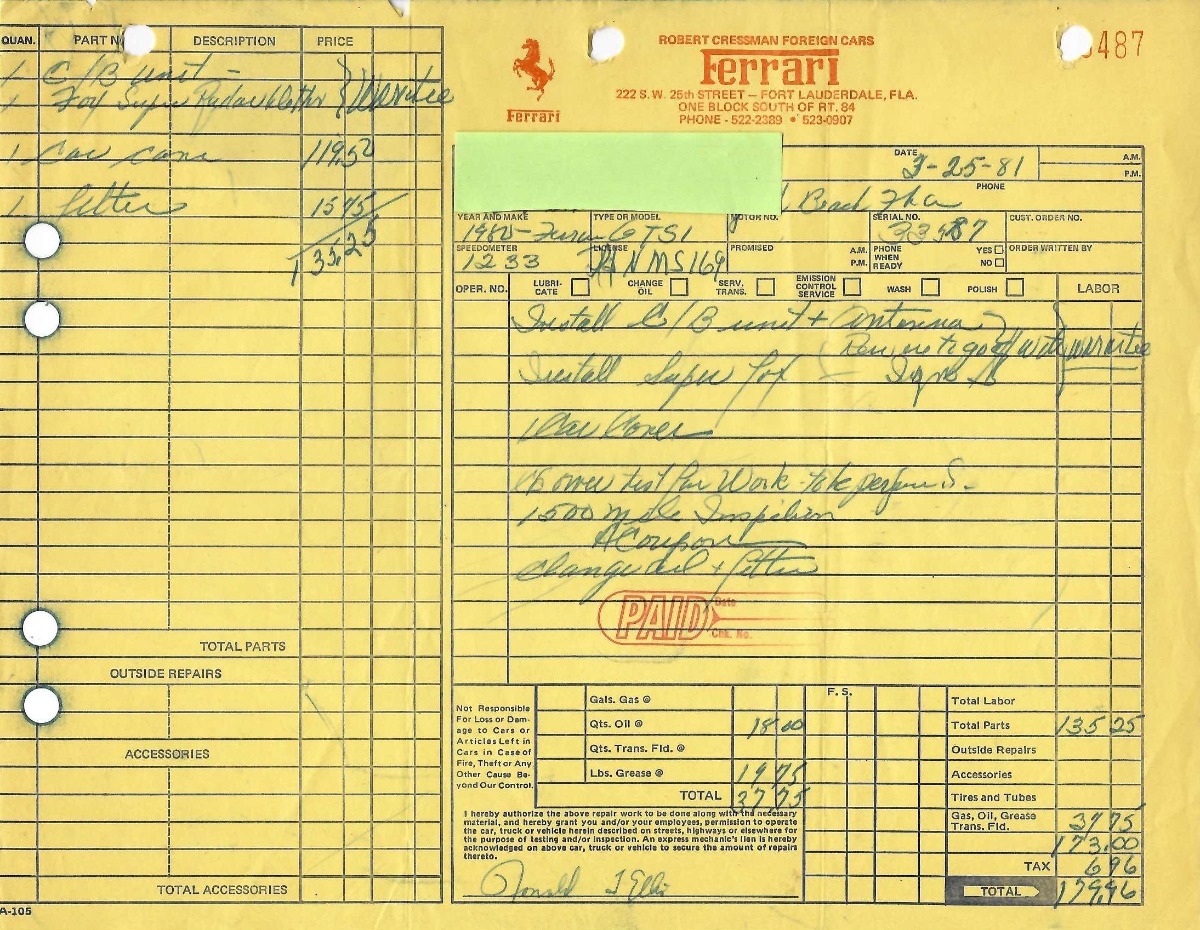 QUAN. PART N DESCRIPTION PRICE
1 C/B unit -
1 Fox Super
119.50
1 15 75
135.25
TOTAL PARTS
OUTSIDE REPAIRS
ACCESSORIES
TOTAL ACCESSORIES
A-105
487
ROBERT CRESSMAN FOREIGN CARS
Ferrari
Ferrari
222 S.W. 25th STREET — FORT LAUDERDALE, FLA.
ONE BLOCK SOUTH OF RT. 84
PHONE - 522-2389 • 523-0907
DATE 3-25-81 A.M.
P.M.
PHONE
Beach Fla
YEAR AND MAKE TYPE OR MODEL MOTOR NO. SERIAL NO. CUST. ORDER NO.
1980 GTSI
SPEEDOMETER LICENSE PROMISED A.M. P.M. PHONE WHEN READY YES NO ORDER WRITTEN BY
1233 MS169
OPER. NO. LUBRI-CATE CHANGE OIL SERV. TRANS. EMISSION CONTROL SERVICE WASH POLISH LABOR
Install C/B unit + Antenna
Install Super Fox
1 Car Cover
test for Work to be
1500 mile
A Coupon
Change oil +
PAID Date
Chk. No.
Not Responsible
For Loss or Dam-
age to Cars or
Articles Left in
Cars in Case of
Fire, Theft or Any
Other Cause Be-
yond Our Control.
Gals. Gas @
Qts. Oil @ 18 00
Qts. Trans. Fld. @
Lbs. Grease @ 19 75
TOTAL 37.75
F.S.
I hereby authorize the above repair work to be done along with the necessary
material, and hereby grant you and/or your employees, permission to operate
the car, truck or vehicle herein described on streets, highways or elsewhere for
the purpose of testing and/or inspection. An express mechanic's lien is hereby
acknowledged on above car, truck or vehicle to secure the amount of repairs
thereto.
Total Labor
Total Parts 135 25
Outside Repairs
Accessories
Tires and Tubes
Gas, Oil, Grease
Trans. Fld. 37 75
173.00
TAX 6 96
TOTAL 179.96